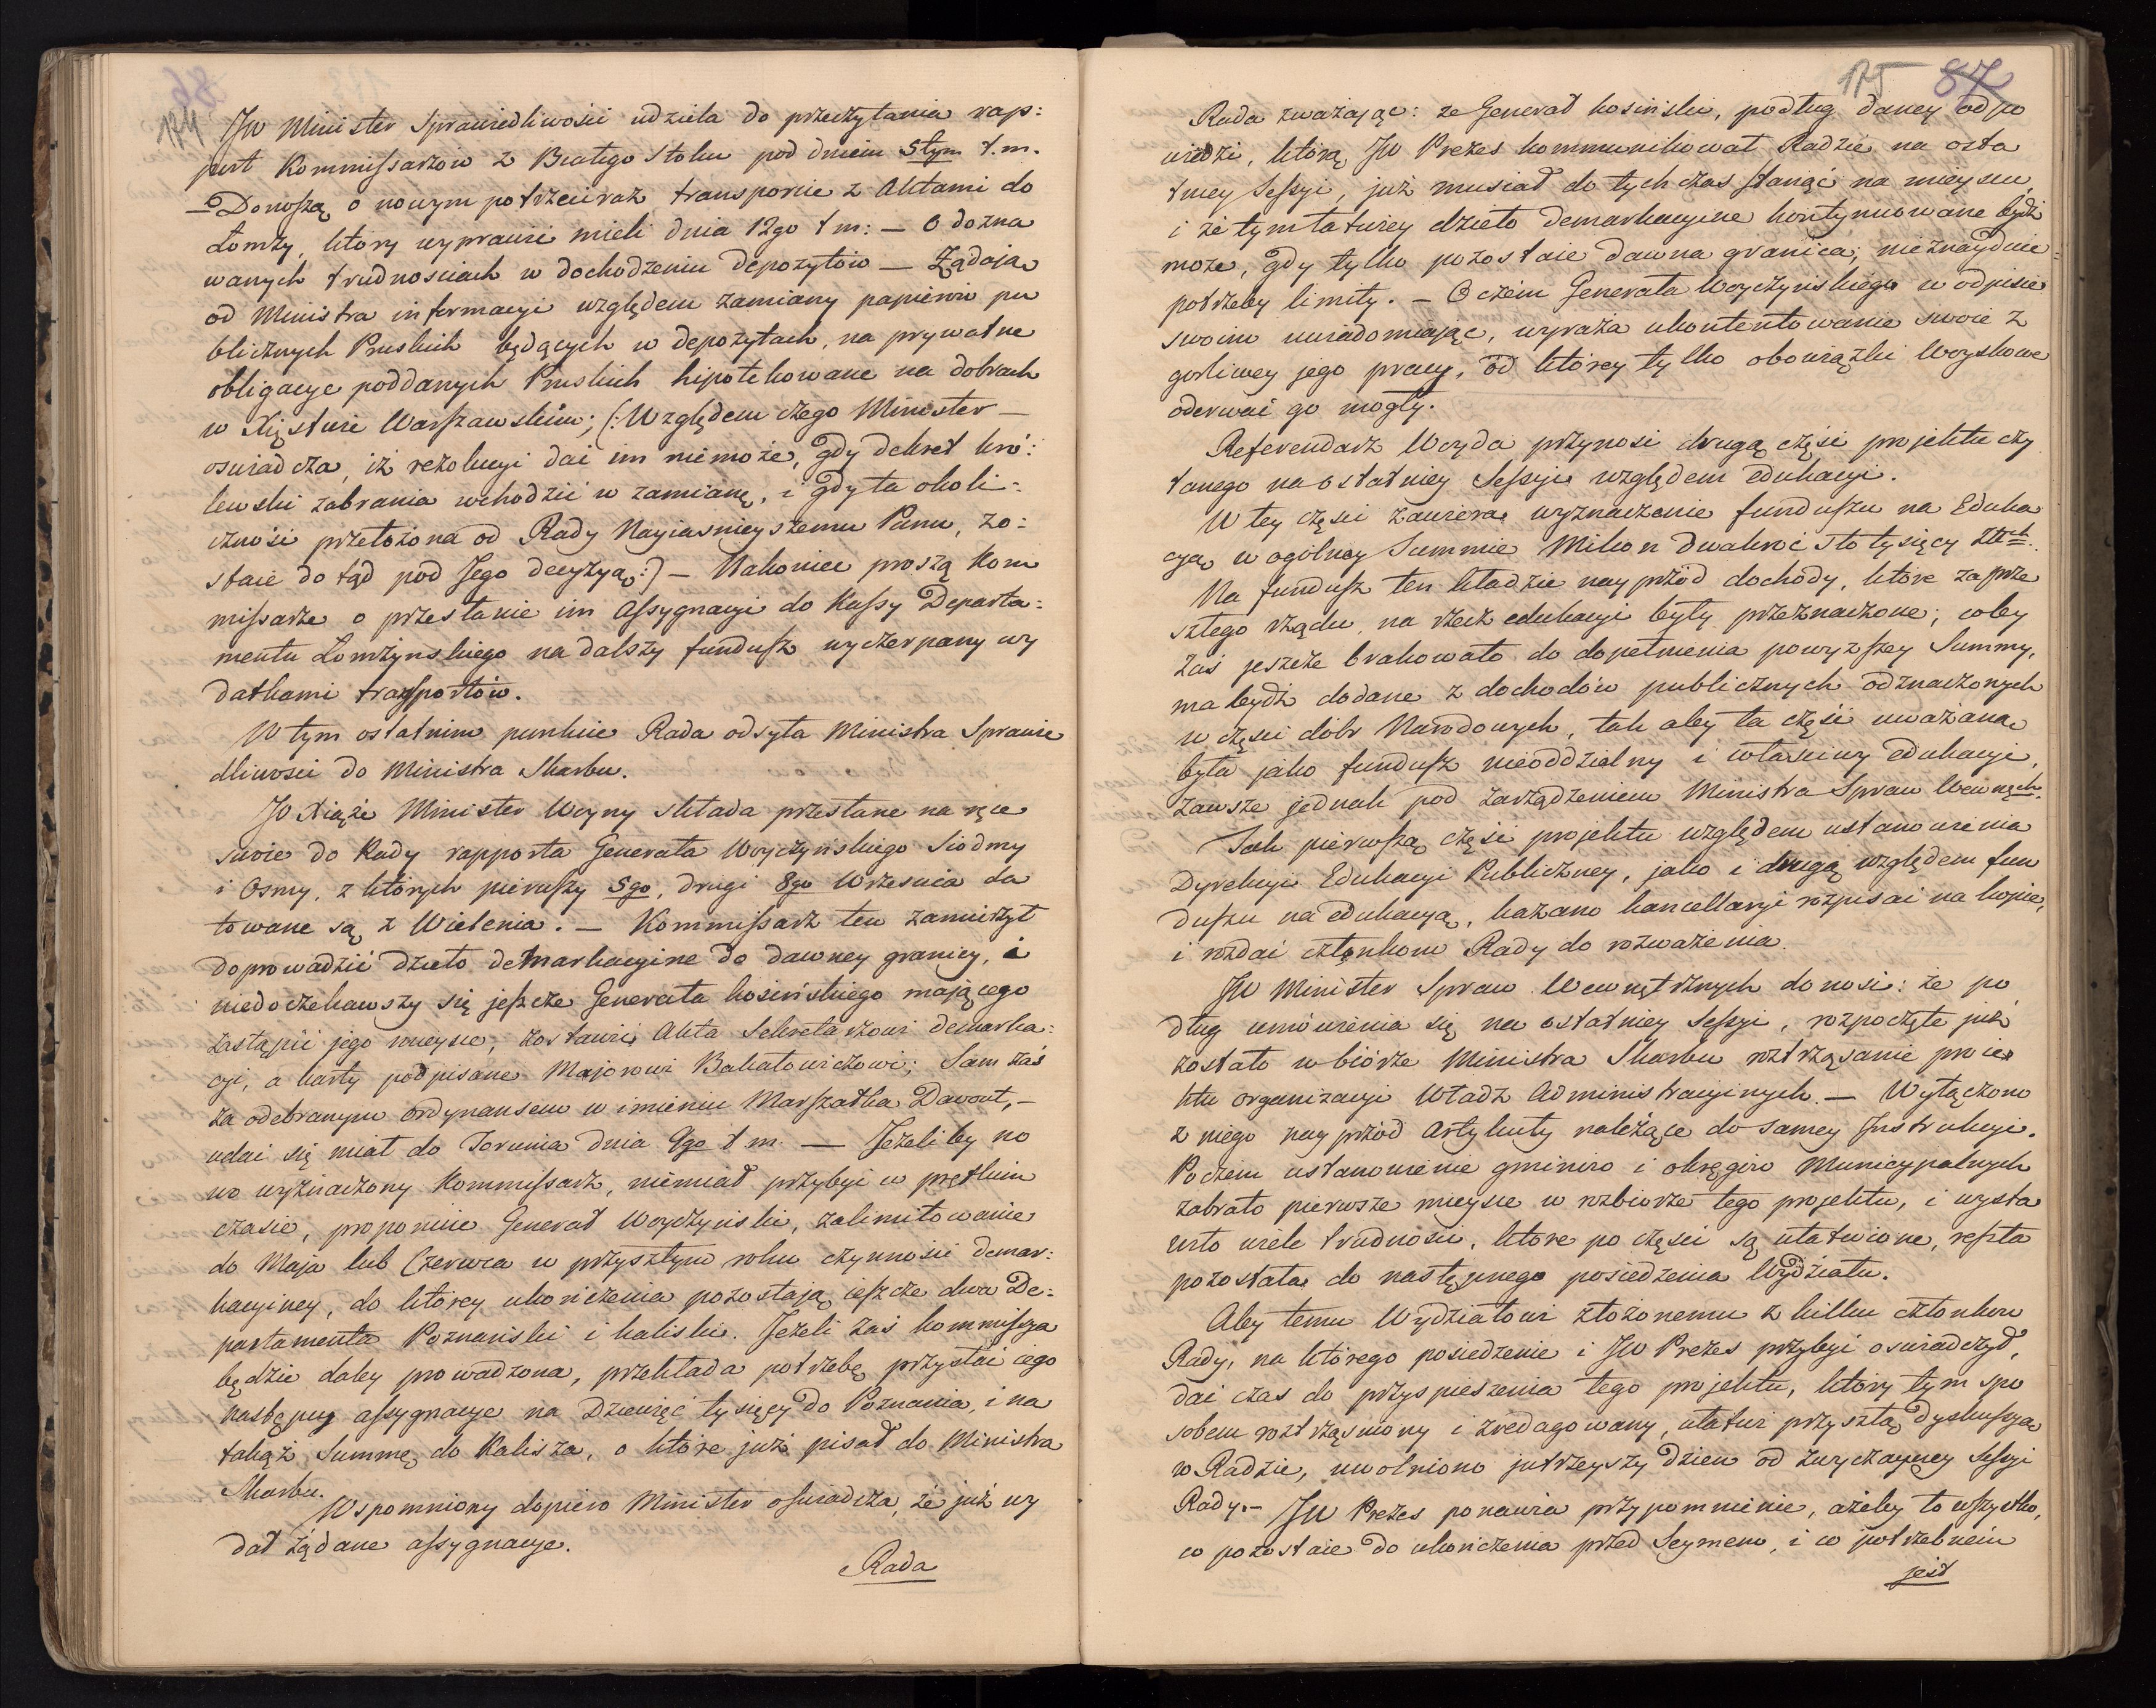 174
JW Minister Sprawiedliwości udziela do przeczytania rap:
port Kommissarzow z Białego Stoku pod dniem 5tym t. m.
– Donoszą o nowym potrzeciraz transporcie z Aktami do
Łomży, ktory wyprawić mieli dnia 12go t m: — O dozna
wanych trudnosciach w dochodzeniu depozytów — Żądaią
od Ministra informacyi względem zamiany papierów pu
blicznych Pruskich będących w depozytach, na prywatne
obligacye poddanych Pruskich hipotekowane na dobrach
w Xięstwie Warszawskim; (:Względem czego Minister —
oswiadcza, iż rezolucyi dać im niemoże, gdy dekret kró:
lewski zabrania wchodzić w zamianę, i gdy ta okoli:
czność przełożona od Rady Nayiasnieyszemu Panu, zo:
staie do tąd pod Jego decyzyą:) — Nakoniec proszą Kom
missarze o przesłanie im Assygnacyi do Kassy Departa:
mentu Łomżynskiego na dalszy fundusz wyczerpany wy
datkami transportów.
W tym ostatnim punkcie Rada odsyła Ministra Sprawie
dliwosci do Ministra Skarbu.
JO Xiąże Minister Woyny składa przesłane na ręce
swoie do Rady rapporta Generała Woyczyńskiego Siodmy
i Osmy, z których pierwszy 5go, drugi 8go Wrzesnia da
towane są z Wielenia. — Kommissarz ten zamierzył
doprowadzić dzieło demarkacyine do dawney granicy, i
niedoczekawszy się jeszcze Generała Kosińskiego mającego
zastąpić jego mieysce, zostawić Akta Sekretarzowi demarka:
cyi, a karty podpisane Majorowi Bakałowiczowi; Sam zaś
za odebranym ordynansem w imieniu Marszałka Davout, –
udać się miał do Torunia dnia 9go t m. — Jeżeliby no
wo wyznaczony Kommissarz, niemiał przybyć w prętkim
czasie, proponuie Generał Woyczyński, zalimitowanie
do Maja lub Czerwca w przyszłym roku czynności demar:
kacyiney, do którey ukończenia pozostają ieszcze dwa De:
partamenta Poznański i kaliski. Jeżeli zaś kommissya
będzie daley prowadzona, przekłada potrzebę przystai iego
następcy assygnacye na Dziewięć tysięcy do Poznania, i na
takąż Summę do Kalisza, o które już pisał do Ministra
Skarbu.
Wspomniony dopiero Minister oswiadcza, że już wy
dał żądane assygnacye.
Rada
175 87
Rada zważając: ze Generał Kosiński, podług daney odpo
wiedzi, którą JW Prezes kommunikował Radzie na osta
tniey Sessyi, już musiał do tych czas stanąć na mieyscu,
i że tym łatwiey dzieło demarkacyine kontynuowane bydź
może, gdy tylko pozostaie dawna granica; nieznayduie
potrzeby limity. – O czém Generała Woyczyńskiego w odpisie
swoim uwiadomiając, wyraża ukontentowanie swoie z
gorliwey jego pracy, od którey tylko obowiązki Woyskowe
oderwać go mogły.
Referendarz Woyda przynosi drugą część projektu czy
tanego na ostatniey Sessyi względem edukacyi.
W tey części zawiera wyznaczenie funduszu na Eduka
cyą w ogolney Summie Milion dwakroć sto tysięcy Złtch.
Na fundusz ten kładzie nayprzód dochody, które za prze
szłego rządu, na rzecz edukacyi były przeznaczone; coby
zaś jeszcze brakowało do dopełnienia powyzszey Summy,
ma bydź dodane z dochodów publicznych odznaczonych
w części dóbr Narodowych, tak aby ta część uważana
była jako fundusz nieoddzielny i właściwy edukacyi,
zawsze jednak pod zarządzeniem Ministra Spraw Wewnęch.
Tak pierwszą część projektu względem ustanowienia
Dyrekcyi Edukacyi Publiczney, jako i drugą względem fun
duszu na edukacyą, kazano kancellaryi rozpisać na kopie,
i rozdać członkom Rady do rozważenia.
JW Minister Spraw Wewnętrznych donosi: że po
dług umówienia się na ostatniey Sessyi, rozpoczęte już
zostało w biórze Ministra Skarbu roztrząsanie proie
ktu organizacyi Władz Administracyinych. — Wyłączono
z niego nayprzód Artykuły należące do samey Instrukcyi.
Poczém ustanowienie gminiro i okręgiro Municypalnych
zabrało pierwsze mieysce w rozbiorze tego projektu, i wysta
wiło wiele trudności, które po części są ułatwione, reszta
pozostała do następnego posiedzenia Wydziału.
Aby temu Wydziałowi złożonemu z kilku członków
Rady, na którego posiedzenie i JW Prezes przybyć oswiadczył,
dać czas do przyspieszenia tego projektu, ktory tym spo
sobem roztrząsniony i zredagowany, ułatwi przyszłą dyskussyą
w Radzie, uwolniono jutrzeyszy dzien od zwyczayney Sessyi
Rady. – JW Prezes ponawia przypomnienie, ażeby to wszystko,
co pozostaie do ukończenia przed Seymem, i co potrzebném
jest